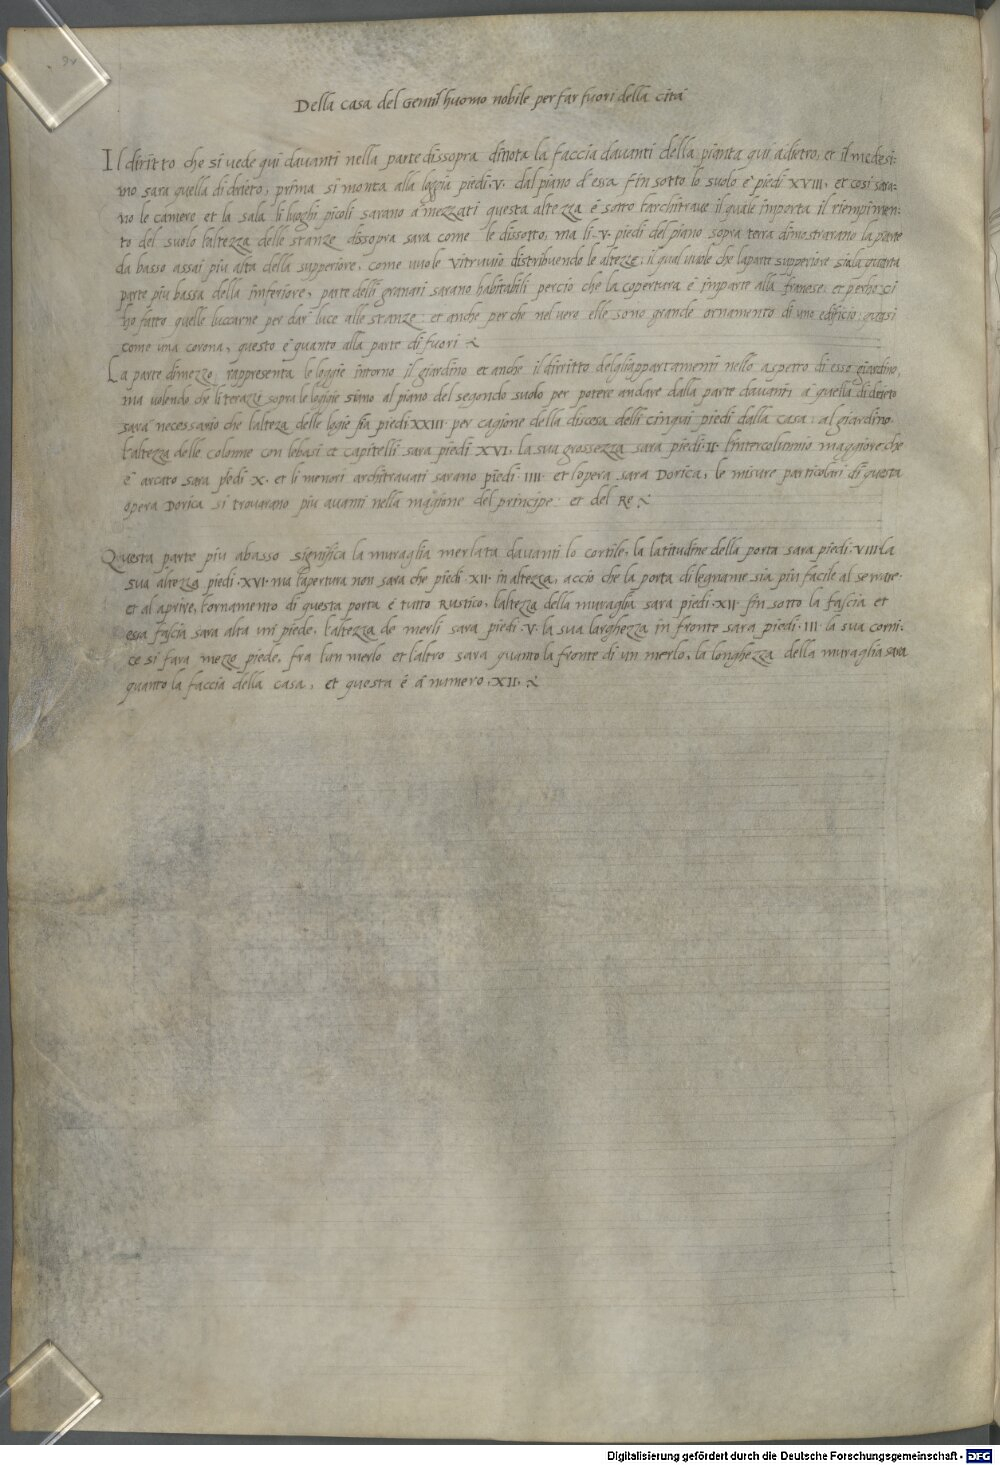 9v
Della casa del Gentil huomo nobile per far fuori della cità
Il diritto che si vede qui davanti nella parte dissopra dinota la faccia davanti della pianta qui adietro, et il medesi:
mo sara quella di drieto, prima si monta alla loggia piedi .V. dal piano d'essa fin sotto lo suolo e' piedi XVIII, et cosi sara:
no le camere et la sala li luoghi picoli sarano a' mezzati questa altezza é sotto l'architrave il quale importa il riempimen:
to del suolo l'altezza delle stanze dissopra sara come le dissotto, ma li .V. piedi del piano sopra terra dimostrarano la parte
da basso assai piu alta della supperiore, come vuole Vitruvio distribuendo le altezze: il qual vuole che la parte supperiore sia la quarta
parte piu bassa della inferiore, parte delli granari sarano habitabili percio che la copertura é in parte alla franese: et perho ci
ho fatto quelle luccarne per dar luce alle stanze: et anche perche nel vero elle sono grande ornamento di uno edificio: quasi
come una corona, questo é quanto alla parte di fuori
La parte dimezzo, rappresenta le loggie intorno il giardino et anche il diritto degli appartamenti nello aspetto di esso giardino,
ma volendo che li terazzi sopra le loggie siano al piano del segondo suolo per potere andare dalla parte davanti a' quella di drieto
sara' necessario che l'alteza delle logie sia piedi XXIII per cagione della discesa delli cinqui piedi dalla casa: al giardino
l'altezza delle colonne con le basi et capitelli sara piedi XVI, la sua grossezza sara piedi .II. l'intercolunnio maggiore che
e' arcato sara piedi X. et li menori architravati sarano piedi .IIII. et l'opera sara Dorica, le misure particolari di questa
opera Dorica si trovarano piu avanti nella magione del principe et del Re
Questa parte piu abasso significa la muraglia merlata davanti lo cortile, la latitudine della porta sara piedi .VIII. la
sua altezza piedi .XVI. ma l'apertura non sara che piedi .XII. in altezza, accio che la porta di legname sia piu facile al serrare
et al aprire, l'ornamento di questa porta e' tutto Rustico, l'altezza della muraglia sara piedi .XII. fin sotto la fascia et
essa fascia sara alta un piede, l'altezza de merli sara piedi .V. la sua larghezza in fronte sara piedi .III. la sua corni:
ce si fara mezzo piede, fra l'un merlo et l'altro sara quanto la fronte di un merlo, la longhezza della muraglia sara
quanto la faccia della casa, et questa é a' numero .XII.
Digitalisierung gefördert durch die Deutsche Forschungsgemeinschaft - DFG